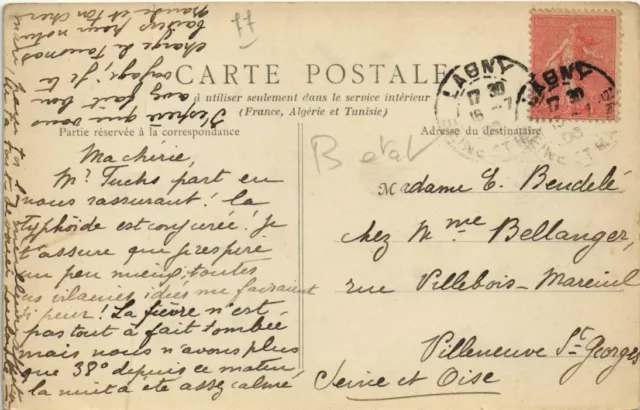 77
CARTE POSTALE
à utiliser seulement dans le service intérieur
(France, Algérie et Tunisie)
Partie réservée à la correspondance
Adresse du destinataire
LAGNY
17 30
16 -7
LAGNY
17 30
SEINE ET M
Ma chérie,
Mr. Fuchs part en
nous rassurant! la
typhoïde est conjurée! Je
t'assure que je respire
un peu mieux, toutes
ces vilaines idées me faisaient
si peur! La fièvre n'est
pas tout à fait tombée
mais nous n'avons plus
que 38° depuis ce matin
la nuit a été assez calme
J'espère que vous
avez fait bon
voyage, je te
charge de
baisers pour notre
et ton cher
Madame E. Bendelé
chez Mme Bellanger,
rue Villebois-Mareuil
Villeneuve St. Georges
Seine et Oise